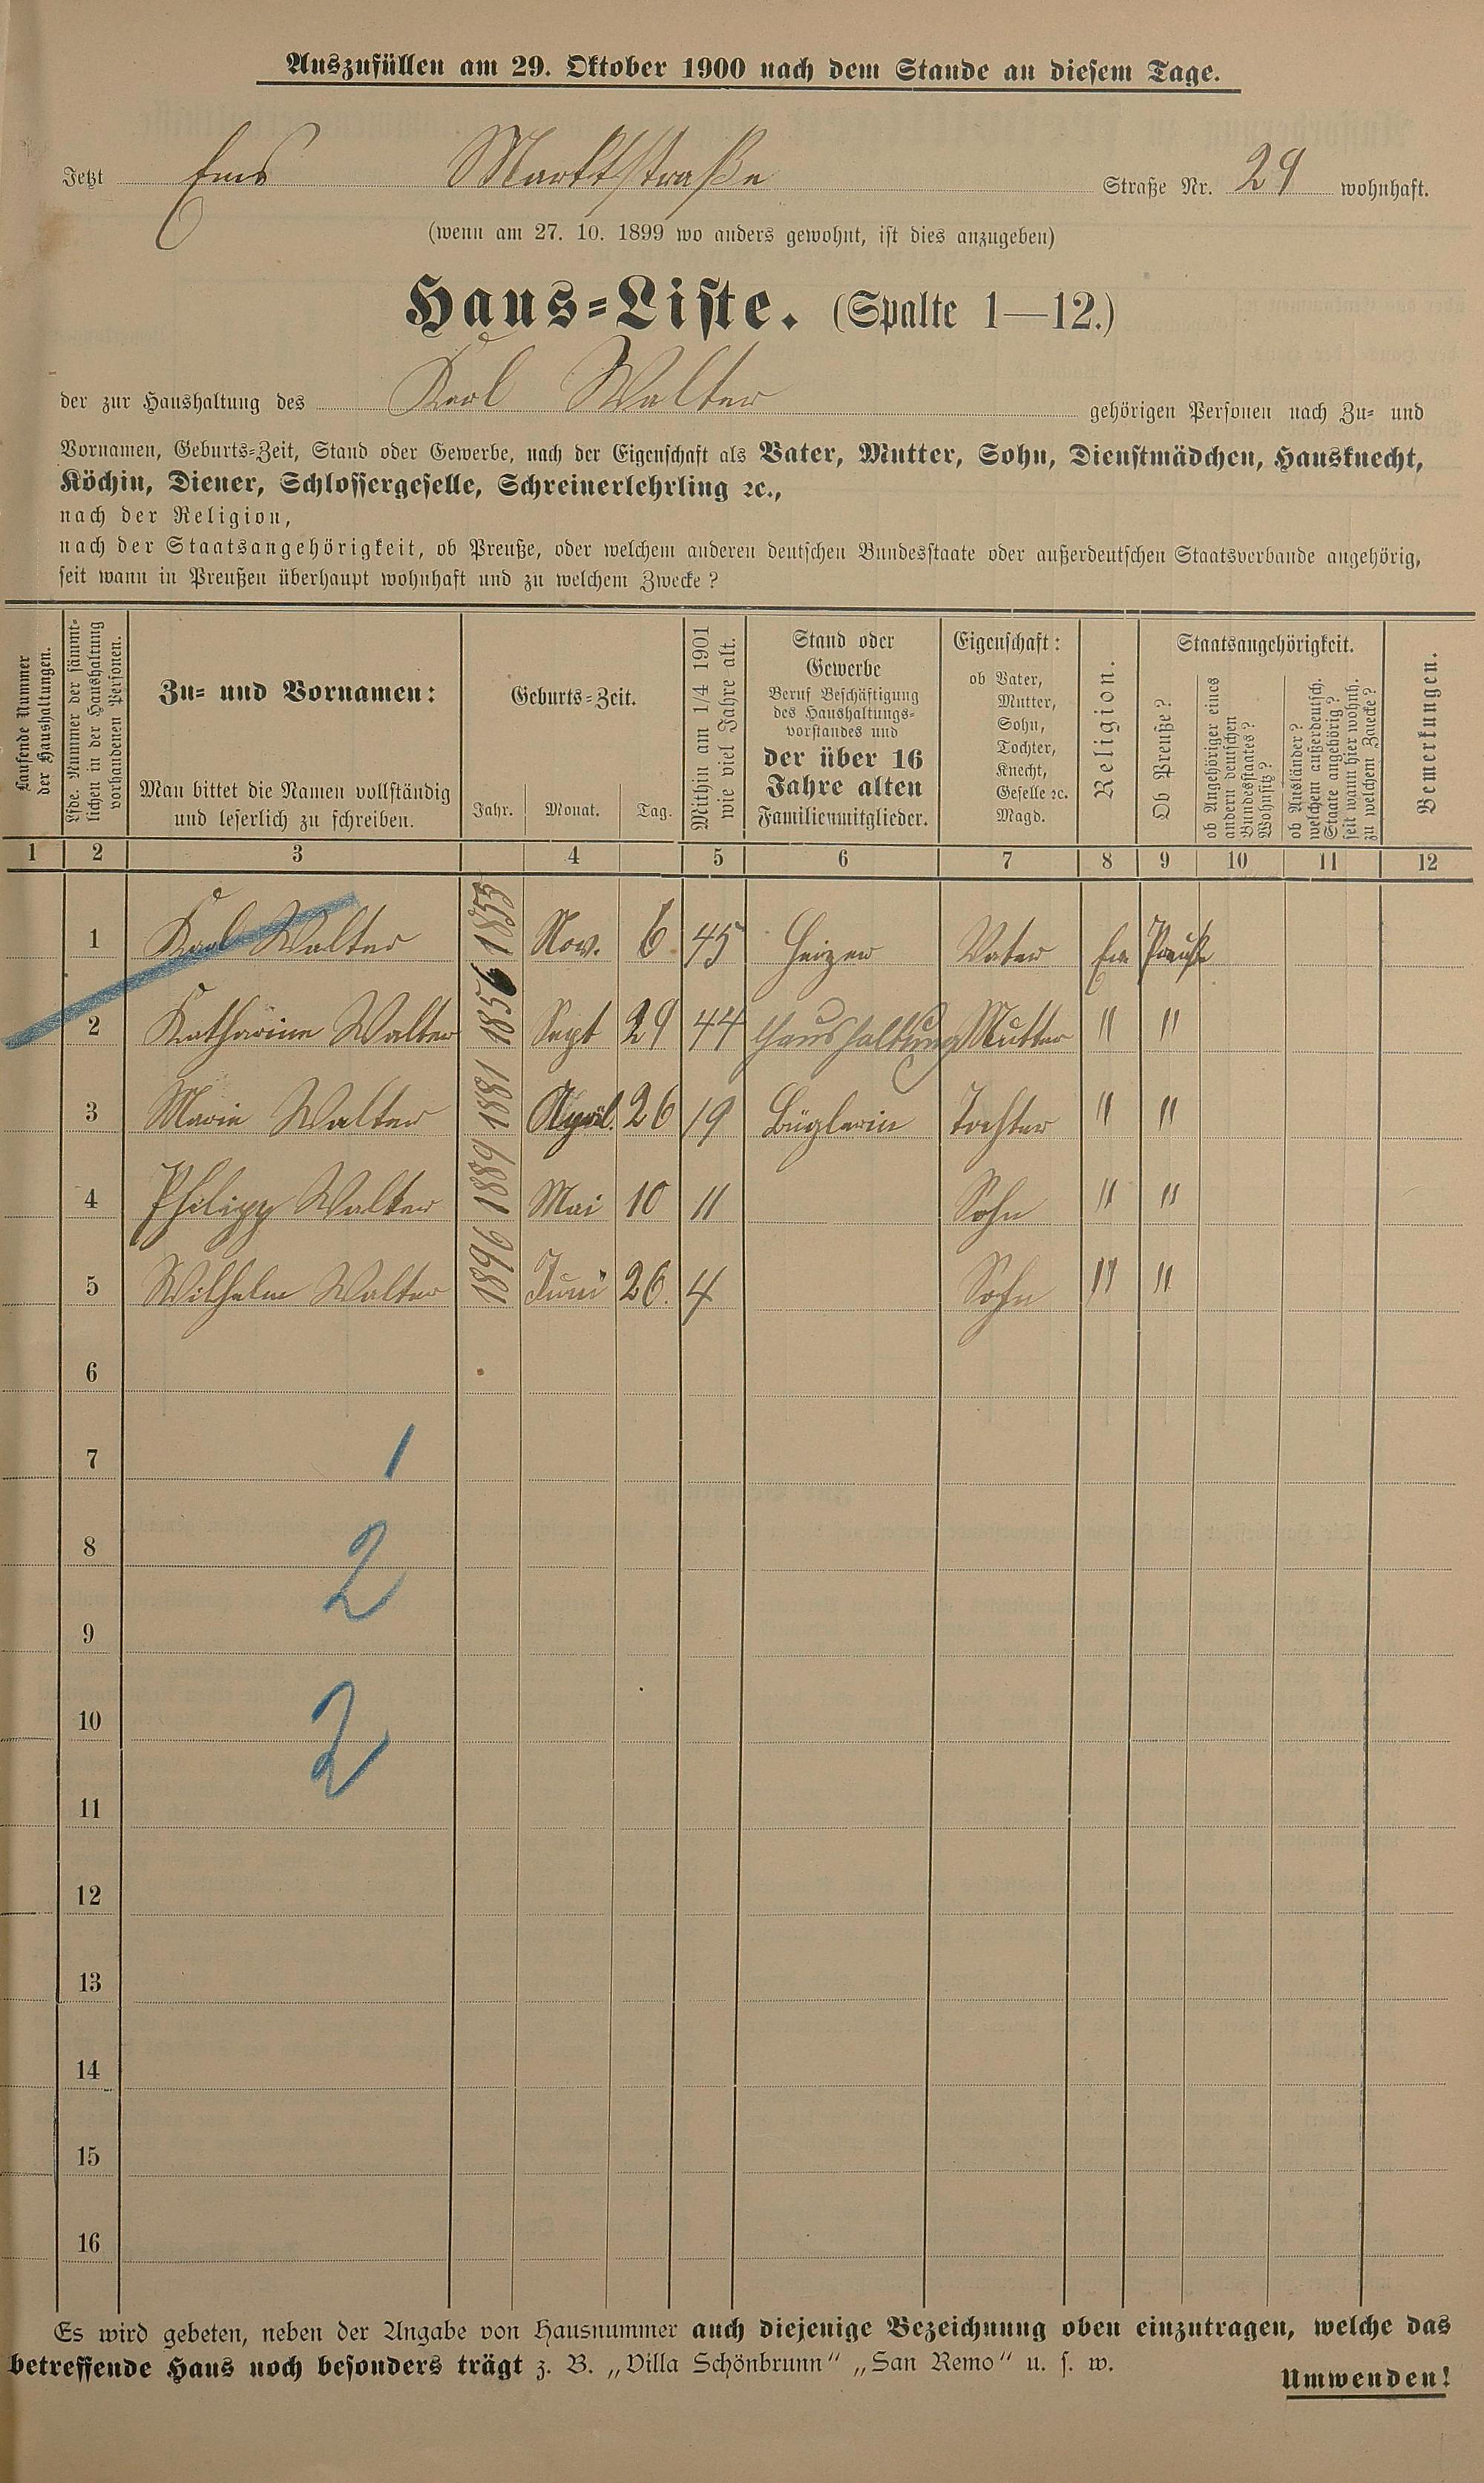 Auszufüllen am 29. Oktober 1900 nach dem Stande an diesem Tage.
Jetzt Ems Marktstraße Straße Nr. 29 wohnhaft.
(wenn am 27. 10. 1899 wo anders gewohnt, ist dies anzugeben)
Haus-Liste. (Spalte 1—12.)
der zur Haushaltung des Karl Walter gehörigen Personen nach Zu- und
Vornamen, Geburts-Zeit, Stand oder Gewerbe, nach der Eigenschaft als Vater, Mutter, Sohn, Dienstmädchen, Hausknecht,
Köchin, Diener, Schlossergeselle, Schreinerlehrling ꝛc.,
nach der Religion,
nach der Staatsangehörigkeit, ob Preuße, oder welchem anderen deutschen Bundesstaate oder außerdeutschen Staatsverbande angehörig,
seit wann in Preußen überhaupt wohnhaft und zu welchem Zwecke?
Laufende Nummer
der Haushaltungen.
Lfde. Nummer der sämmt-
lichen in der Haushaltung
vorhandenen Personen.
Zu- und Vornamen:
Man bittet die Namen vollständig
und leserlich zu schreiben.
Geburts-Zeit.
Jahr. Monat. Tag.
Mithin am 1/4 1901
wie viel Jahre alt.
Stand oder
Gewerbe
Beruf Beschäftigung
des Haushaltungs-
vorstandes und
der über 16
Jahre alten
Familienmitglieder.
Eigenschaft:
ob Vater,
Mutter,
Sohn,
Tochter,
Knecht,
Geselle ꝛc.
Magd.
Religion.
Staatsangehörigkeit.
Ob Preuße?
ob Angehöriger eines
andern deutschen
Bundesstaates?
Wohnsitz?
ob Ausländer?
welchem außerdeutsch.
Staate angehörig?
seit wann hier wohnh.
zu welchem Zwecke?
Bemerkungen.
1 2 3 4 5 6 7 8 9 10 11 12
1 Karl Walter 1855 Nov. 6 45 Heizer Vater Ev Preuße
2 Katharine Walter 1856 Sept 29 44 Haushaltung Mutter " "
3 Marie Walter 1881 April. 26 19 Büglerin Tochter " "
4 Philipp Walter 1889 Mai 10 11 Sohn " "
5 Wilhelm Walter 1896 Juni 26. 4 Sohn " "
6
7 1
8 2
9
10 2
11
12
13
14
15
16
Es wird gebeten, neben der Angabe von Hausnummer auch diejenige Bezeichnung oben einzutragen, welche das
betreffende Haus noch besonders trägt z. B. „Villa Schönbrunn“ „San Remo“ u. s. w.
Umwenden!